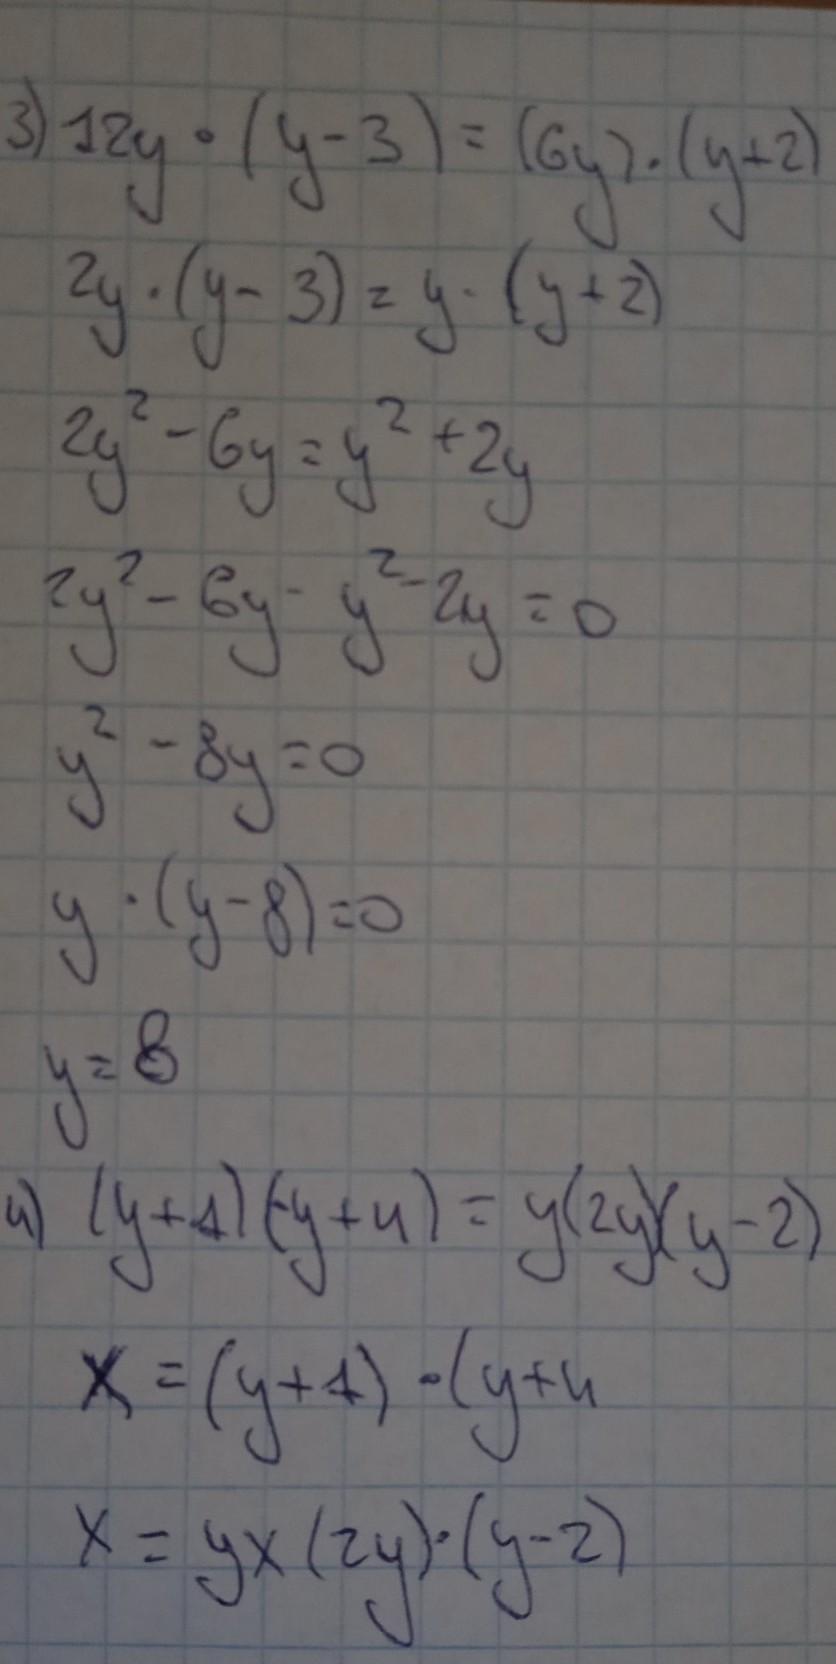 3) 12y · (y - 3) = (6y) · (y + 2)
2y · (y - 3) = y · (y + 2)
2y² - 6y = y² + 2y
2y² - 6y - y² - 2y = 0
y² - 8y = 0
y · (y - 8) = 0
y = 8
4) (y + 1) (-y + 4) = y(2y)(y - 2)
x = (y + 1) · (y + 4
x = yx (2y) · (y - 2)